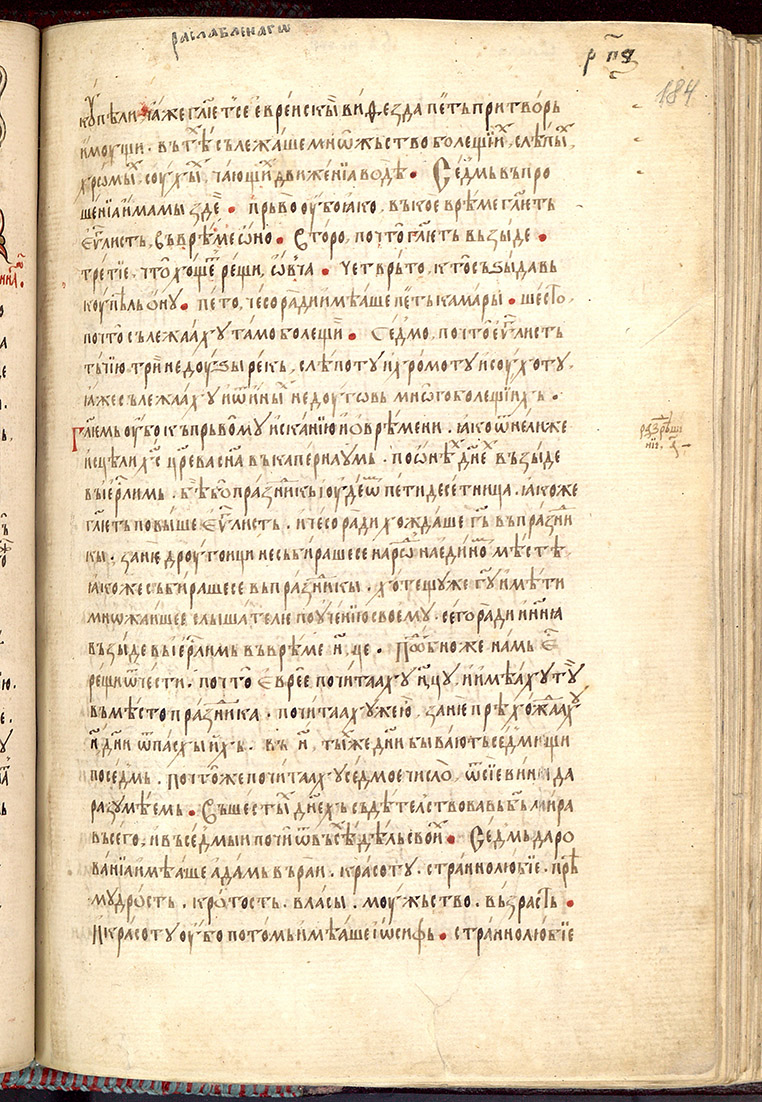 раслабленагѡ
р҃пз
184
кꙋпѣли ꙗже гл҃ет се еврейскыⷨ виѳезда петь притворь
имоущи. въ тѣⷯ сълежаше мнѡжьство болещїиⷯ, слѣпыⷯ,
хромыⷯ, соухыⷯ, чающиⷯ движенїа водѣ. Седмь въпро
шенїа имамы зде. прьво оубо ꙗко, въ кое врѣме гл҃еть
еѵⷢ҇листь, Въ врѣме ѻно. Второ, почто гл҃еть възыде.
третїе, что хощеⷮ рещи, ѻвча. четврьто, кто съзыда вь
коупѣль ѻну. пето, чесо ради имѣаше петь камары. шесто,
почто сълежаахꙋ тамо болещїи. Седмо, почто еѵⷢ҇листь
тъчїю три недоугы рекь, слѣпотꙋ и хромотꙋ и соухотꙋ,
ꙗже сълежаахꙋ и ѿ иныⷯ недоугѡвь мнѡго болещїихь.
Гл҃емь оубо къ прьвомꙋ исканїю и ѻ врѣмени. ꙗко ѿнелиже
исцѣли х҃с цр҃ева сн҃а въ капернаумь. по ѻнѣⷯ дн҃еⷯ възыде
вь іерⷭ҇лимь. бѣ бо праздникь іоудеѡⷨ петидесетница. ꙗкоже
гл҃еть повыше еѵⷢ҇листь. и чесо ради хождаше гь҃ въ праздни
кы. зане дроугоици не събираше се нарѡⷣ на едиⷩно мѣстѣ
ꙗкоже събираше се въ праздникы. хоте ꙋже гь҃ имѣти
мнѡжаишее слышателю поученїю своемꙋ. сего ради и н҃ніа
възыде вь іерⷭ҇лимь въ врѣме н҃ ще. Подобно же намь еⷭ҇
рещи ѿ чести. почто еврее почитаахꙋ н҃цꙋ, и имѣахꙋ тꙋ
въ мѣсто праздника. почитаахꙋ же ю, зане прѣхождаахꙋ
н҃ дн҃и ѿ пасхы ихь. въ н҃, тыⷯже дн҃и бывають седмищи
по седмь. почтоже почитаахꙋ седмое число, ѿ сїе вини да
разꙋмѣемь. Въ шестыⷯ дн҃ехь съдѣтелствовавь бь҃ мира
въсего, и въ седмыи почи ѿ въсѣⷯ дѣль своиⷯ. Седмь даро
ванїа имѣаше адамь въ раи. красотꙋ. страннолюбїе. прѣ
мꙋдрость. кротость. власы. моужьство. възрасть.
И красотꙋ оубо потомь имѣаше іѡсифь. страннолюбїе